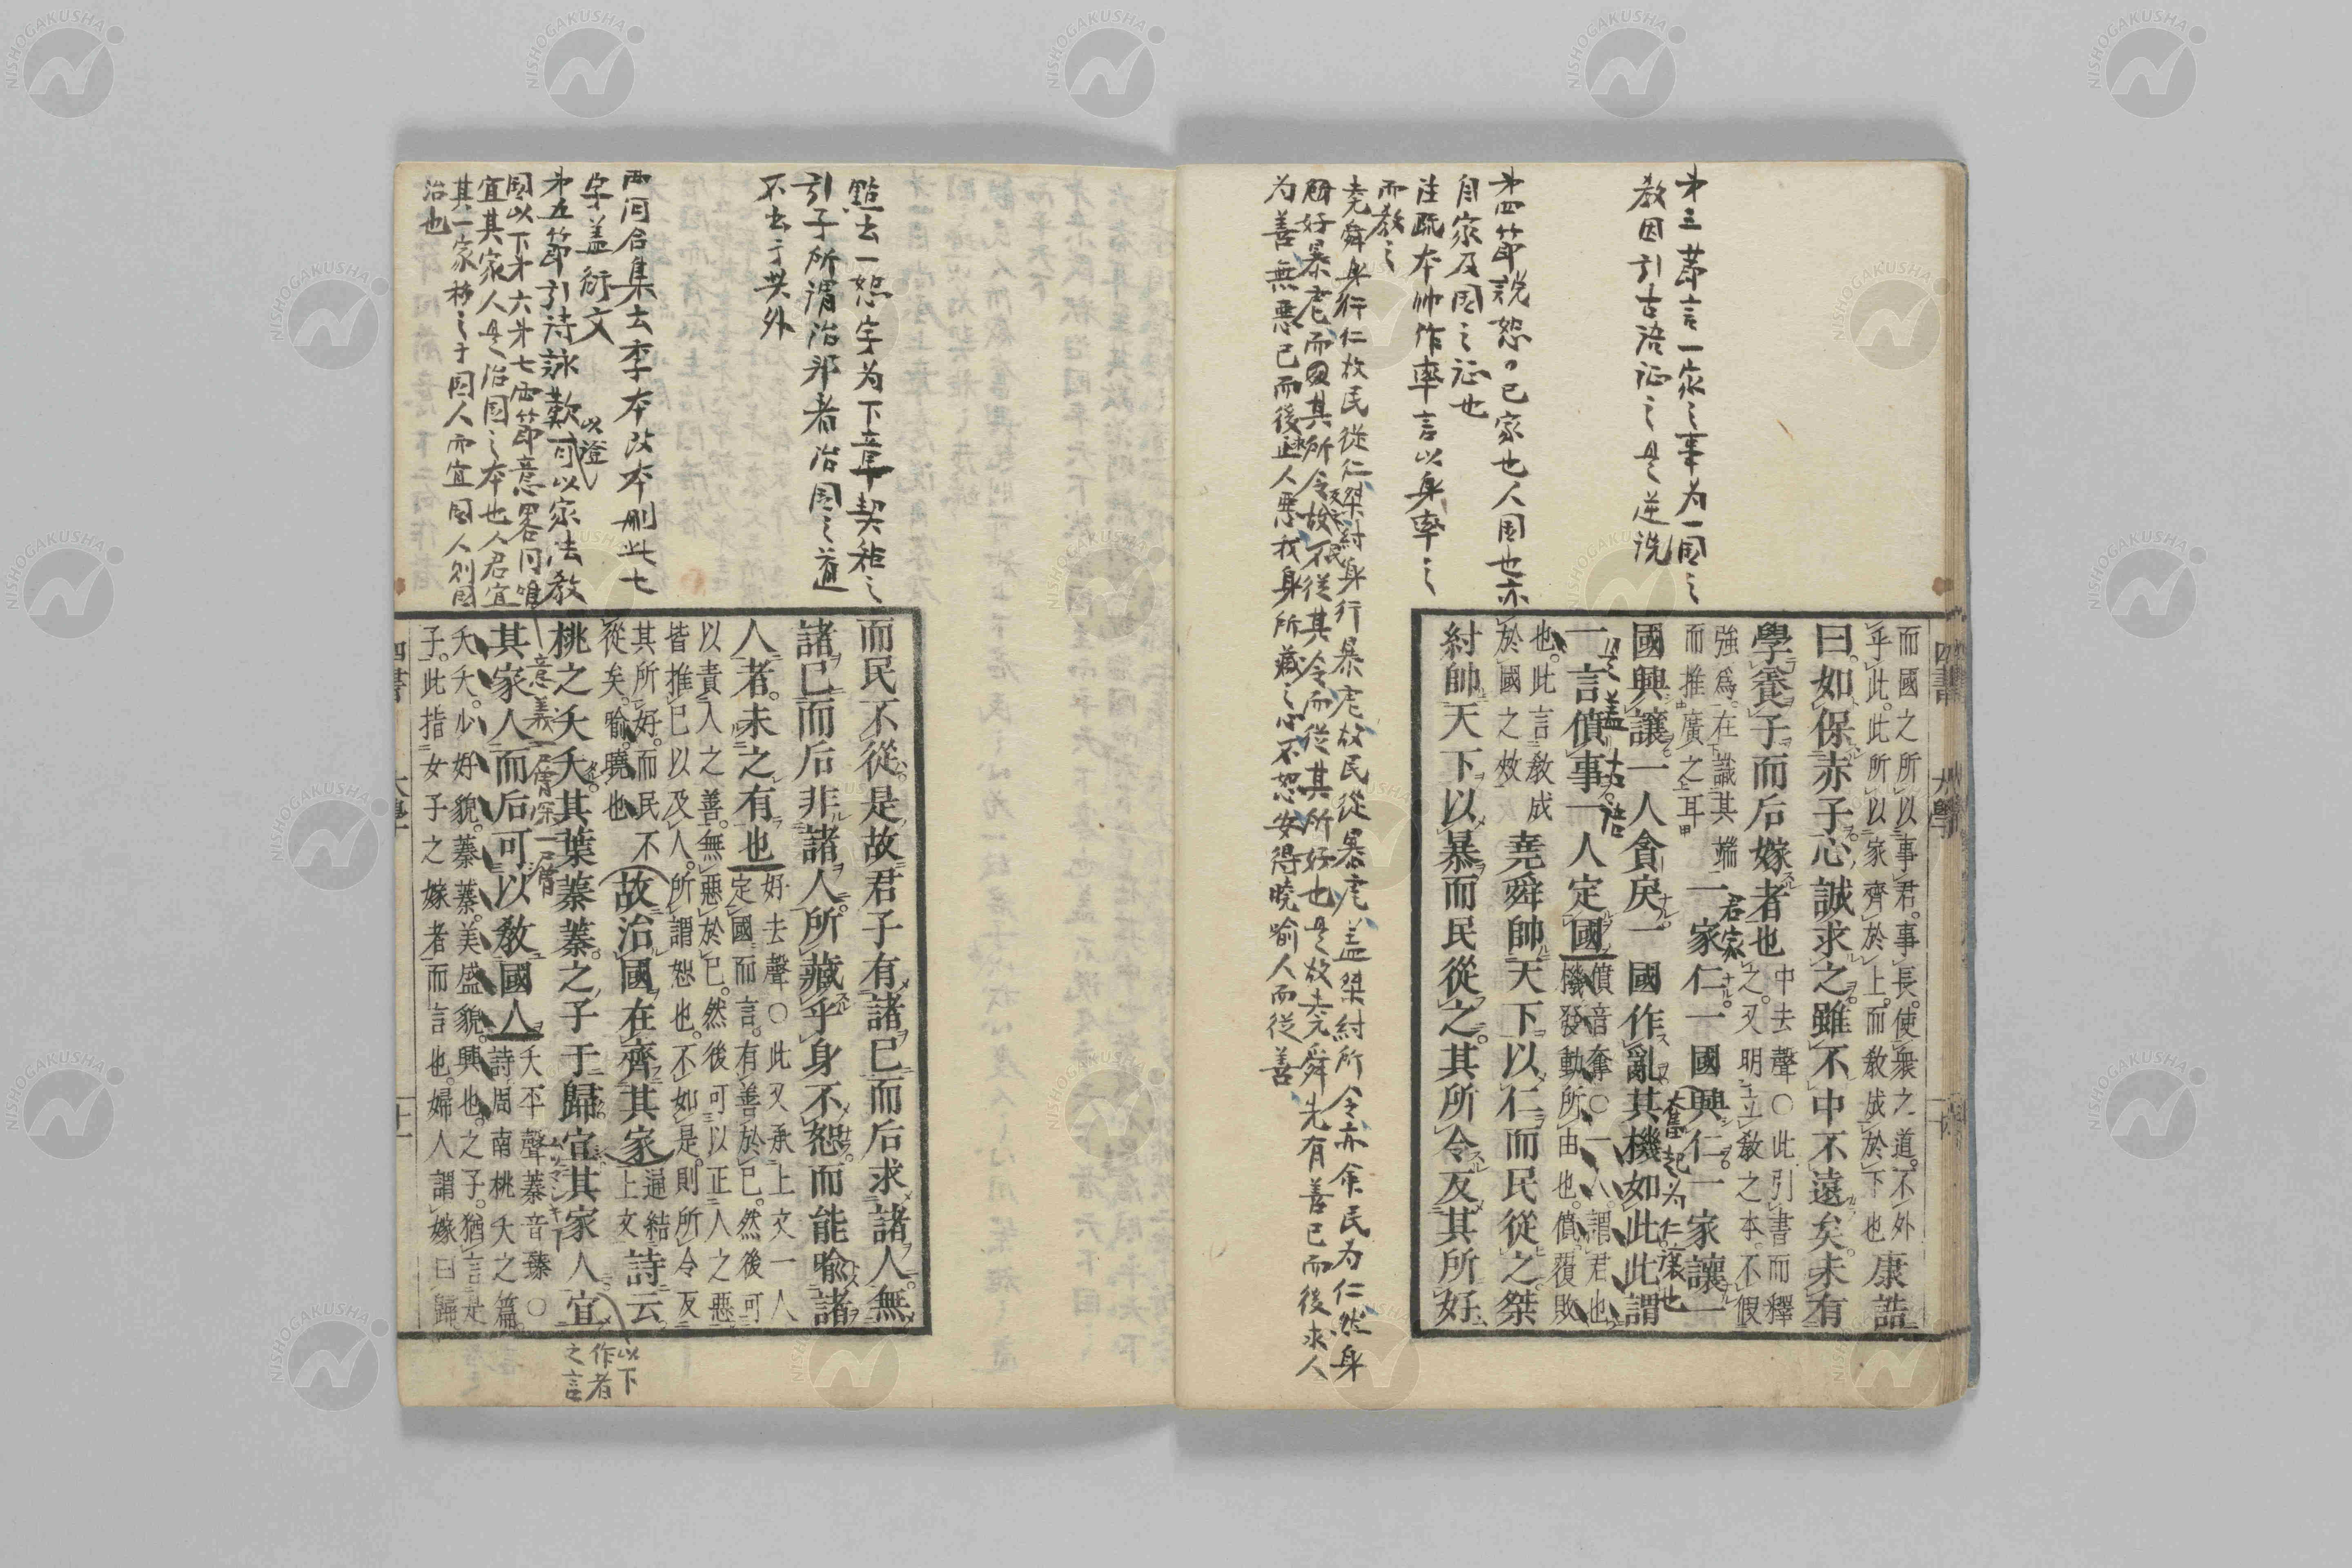 才三節言一家之事為一國之
教因引古語証之是逆説
才四節説恕々己家也人国也亦
自家及国之証也
注疏本帅作率言以身率之
而教之
堯舜身行仁故民従仁桀紂身行暴虐故民従暴虐盖桀紂所令亦令民為仁然身
為善無悪已而後正人悪我身所藏之心不恕安得曉喻人而従善
而國之所以事君事長使衆之道不外
乎此此所以家齊於上而教成於下也
康誥
曰如保赤子心誠求之雖不中不遠矣未有
學養子而后嫁者也
中去聲○此引書而釋
之又明立教之本不假
強為在識其端
而推廣之耳
一家仁一國興仁一家讓一
君家
國興讓一人貪戾一國作亂其機如此此謂
奮起为仁讓也
一言僨事一人定國
是盖古語
僨音奮○一人謂君也
機發動所由也僨覆敗
也此言教成
於國之效
堯舜帥天下以仁而民從之桀
紂帥天下以暴而民從之其所令反其所好
四書
大學
點去一恕字为下章契矩之
引子所謂治邦者治國之道
不去于其外
両問合集去李本改本刪此七
字盖衍文
才五節引詩詠歎以證可以家法教
国以下才六才七両節意畧同唯
宜其家人是治国之本也人君宜
其一家移之于国人而宜国人則国
治也
而民不從是故君子有諸己而后求諸人無
諸己而后非諸人所藏乎身不恕而能喻諸
人者未之有也
好去聲○此又承上文一人
定國而言有善於己然後可
以責人之善無惡於己然後可以正人之惡
皆推己以及人所謂恕也不如是則所令反
其所好而民不
從矣喻曉也
故治國在齊其家
通結
上文
詩云
桃之夭夭其葉蓁蓁之子于歸宜其家人宜
意義一層深一層
其家人而后可以教國人
夭平聲蓁音臻○
詩周南桃夭之篇
夭夭少好貌蓁蓁美盛貌興也之子猶言是
子此指女子之嫁者而言也婦人謂嫁曰歸
以下
作者
之言
四書
大學
十一